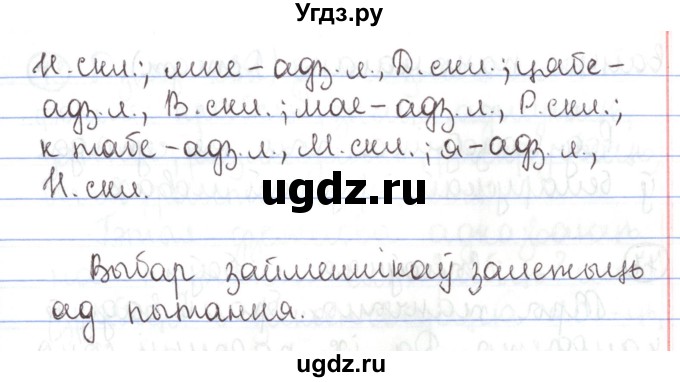 Угдз.ру
Н. скл.; мне – адз. л., Д. скл.; цябе –
адз. л., В. скл.; мае – адз. л., Р. скл.;
к табе – адз. л., М. скл.; я – адз. л.,
Н. скл.
ugdz.ru
Выбар займеннікаў залежыць
ад пытання.
ugdz.ru